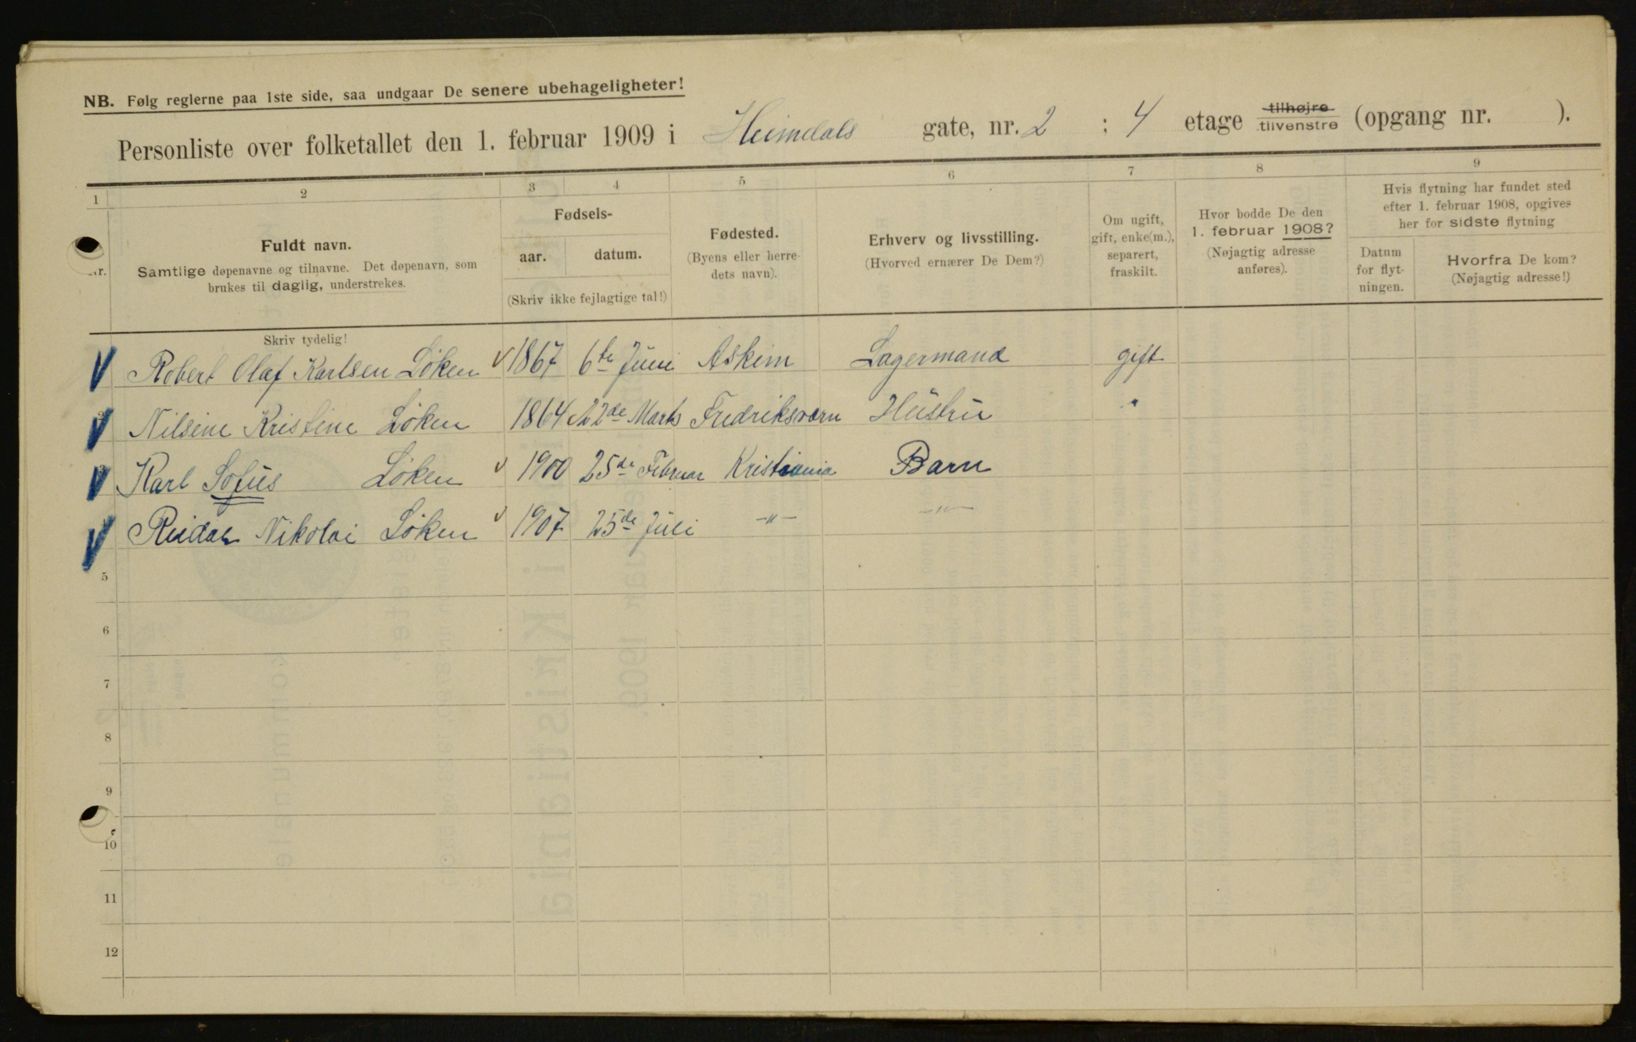 NB. Følg reglerne paa 1ste side, saa undgaar De senere ubehageligheter!
Personliste over folketallet den 1. februar 1909 i Heimdals gate, nr. 2 : 4 etage tilhøjre tilvenstre (opgang nr. ).
1 2 3 4 5 6 7 8 9
Nr.
Fuldt navn.
Samtlige døpenavne og tilnavne. Det døpenavn, som
brukes til daglig, understrekes.
Skriv tydelig!
Fødsels-
aar. datum.
(Skriv ikke fejlagtige tal!)
Fødested.
(Byens eller herre-
dets navn).
Erhverv og livsstilling.
(Hvorved ernærer De Dem?)
Om ugift,
gift, enke(m.),
separert,
fraskilt.
Hvor bodde De den
1. februar 1908?
(Nøjagtig adresse
anføres).
Hvis flytning har fundet sted
efter 1. februar 1908, opgives
her for sidste flytning
Datum
for flyt-
ningen.
Hvorfra De kom?
(Nøjagtig adresse!)
Robert Olaf Karlsen Løken 1867 6te Juni Askim Lagermand gift
Nilsine Kristine Løken 1864 22de Marts Fredriksværn Hustru "
Karl Sofus Løken 1900 25de Februar Kristiania Barn
Reidar Nikolai Løken 1907 25de Juli -"- -"-
5
6
7
8
9
10
11
12